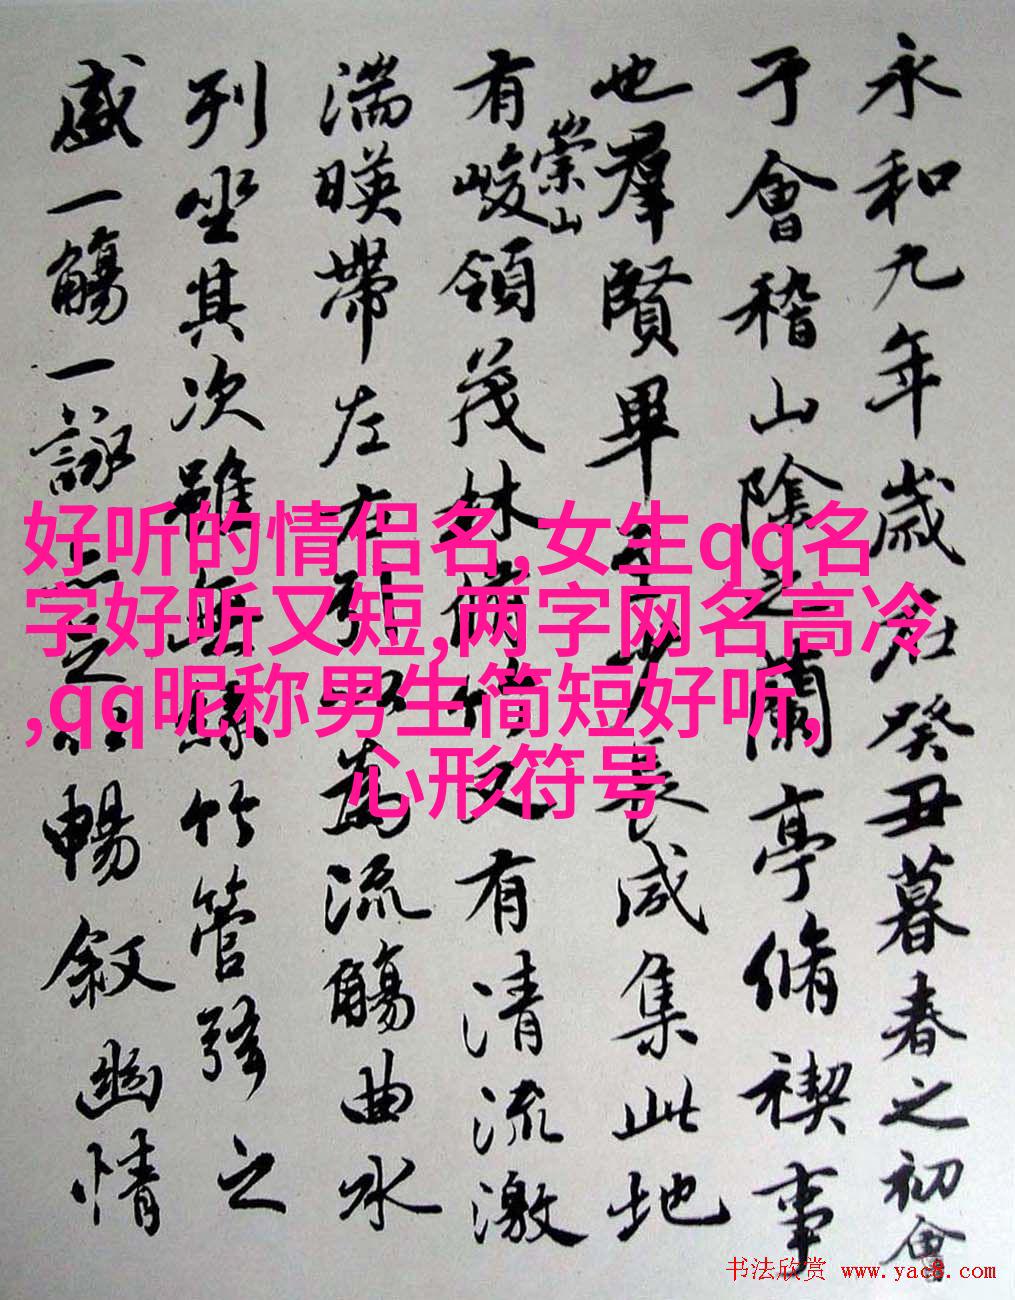 永和九年歲在癸丑暮春之初會
于會稽山陰之蘭亭脩禊事
也羣賢畢至少長咸集此地
有崇山峻領茂林脩竹又有清流激
湍暎帶左右引以為流觴曲水
列坐其次雖無絲竹管弦之
盛一觴一詠亦足以暢敘幽情
好听的情侣名,女生qq名
字好听又短,两字网名高冷
,qq昵称男生简短好听,
心形符号
书法欣赏 www.yac8.com